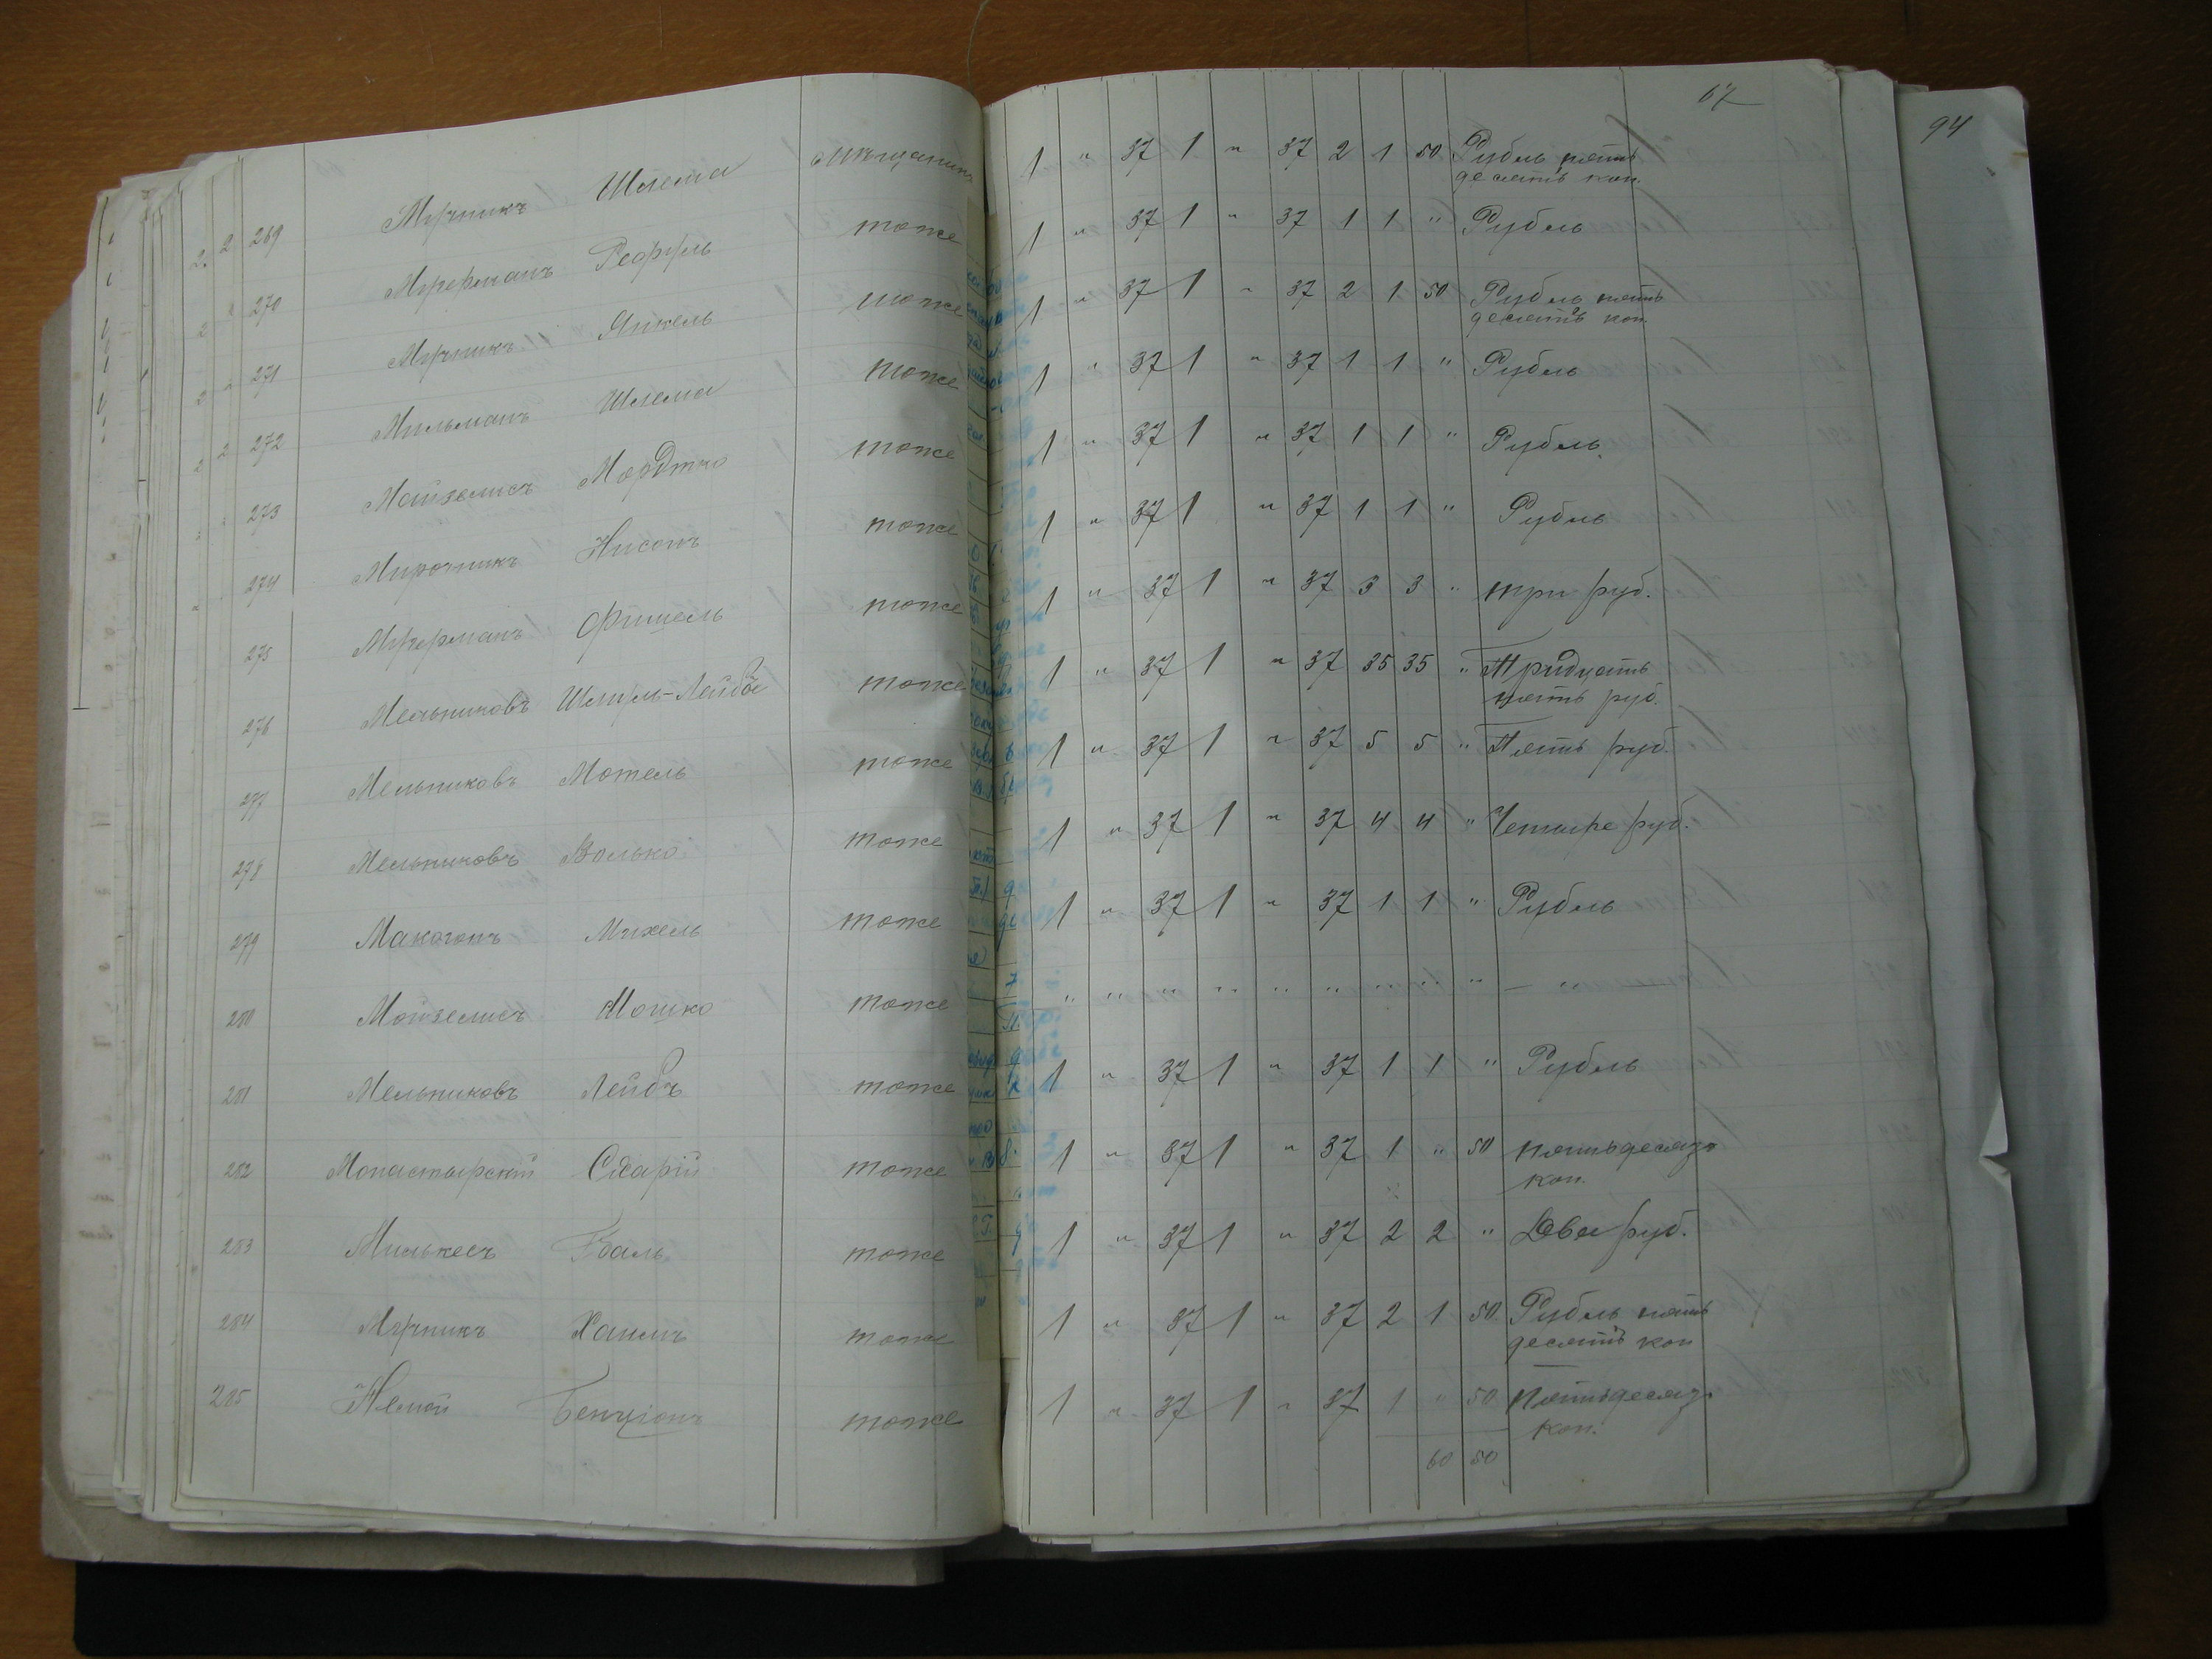 67
94
269 Мучникъ Шлема мѣщанинъ 1 " 37 1 " 37 2 1 50 Рубль пять
десятъ коп.
270 Мучерманъ Рефуль тоже 1 " 37 1 " 37 1 1 " Рубль
271 Мучникъ Янкель тоже 1 " 37 1 " 37 2 1 50 Рубль пять
десятъ коп.
272 Мильманъ Шлема тоже 1 " 37 1 " 37 1 1 " Рубль
273 Майзелисъ Мордтко тоже 1 " 37 1 " 37 1 1 " Рубль
274 Мирочникъ Нисонъ тоже 1 " 37 1 " 37 1 1 " Рубль
275 Мучерманъ Фишель тоже 1 " 37 1 " 37 3 3 " три руб.
276 Мельниковъ Шмуль-Лейба тоже 1 " 37 1 " 37 35 35 " Тридцать
пять руб.
277 Мельниковъ Мотель тоже 1 " 37 1 " 37 5 5 " Пять руб.
278 Мельниковъ Волько тоже 1 " 37 1 " 37 4 4 " Четыре руб.
279 Макогонъ Михель тоже 1 " 37 1 " 37 1 1 " Рубль
280 Мойзелисъ Мошко тоже " " " " " " " " " — " —
281 Мельниковъ Лейбъ тоже 1 " 37 1 " 37 1 1 " Рубль
282 Монастырскій Сдарій тоже 1 " 37 1 " 37 1 " 50 пятьдесятъ
коп.
283 Милькесъ тоже 1 " 37 1 " 37 2 2 " Два руб.
284 Мучникъ Хаимъ тоже 1 " 37 1 " 37 2 1 50 Рубль пять
десятъ коп
285 Немой Бенціонъ тоже 1 " 37 1 " 37 1 " 50 Пятьдесят
коп.
60 50